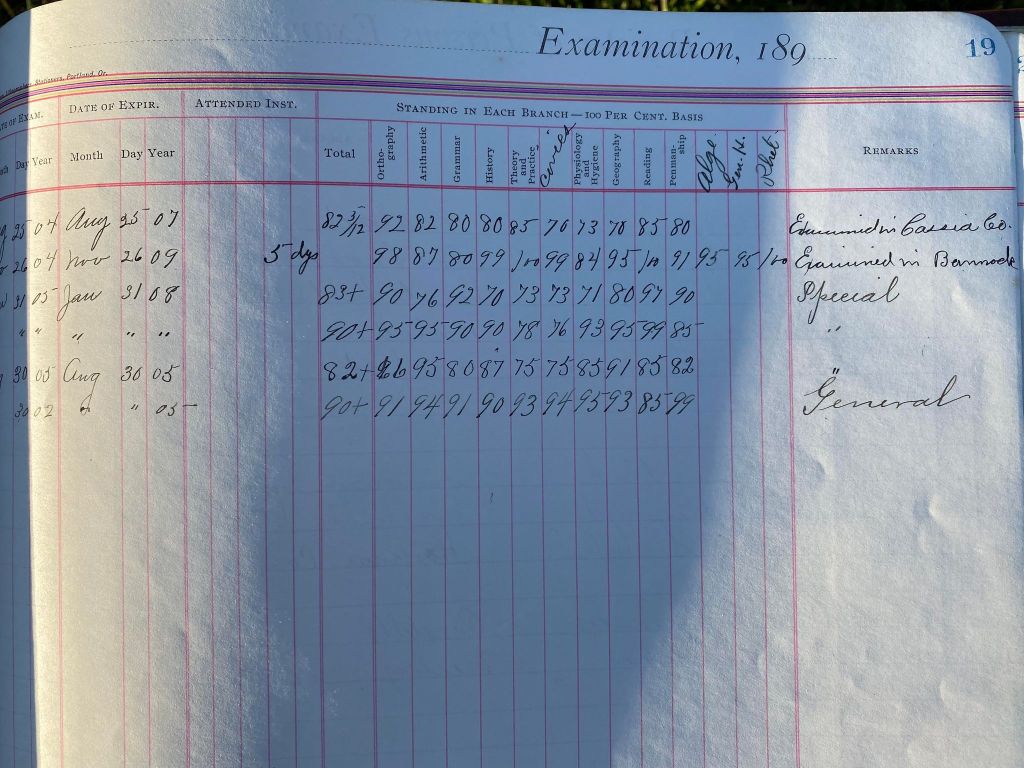 Examination, 189
19
Stationers, Portland, Or.
OF EXAM. DATE OF EXPIR. ATTENDED INST. STANDING IN EACH BRANCH—100 PER CENT. BASIS
Day Year Month Day Year Total Ortho-graphy Arithmetic Grammar History Theory and Practice Civics Physiology and Hygiene Geography Reading Penman-ship Alge. Gen. H. Rhet. REMARKS
25 04 Aug 25 07 82 3/12 92 82 80 80 85 76 73 78 85 80 Examined in Cassia Co.
26 04 Nov 26 09 5 dys 98 87 80 99 100 99 84 95 100 91 95 95 100 Examined in Bannock
31 05 Jan 31 08 83+ 90 76 92 70 73 73 71 80 97 90 Special
" " " " " 90+ 95 95 90 90 78 76 93 95 99 85 "
30 05 Aug 30 05 82+ 66 95 80 87 75 75 85 91 85 82 "
30 02 " " 05 90+ 91 94 91 90 93 94 95 93 85 99 General